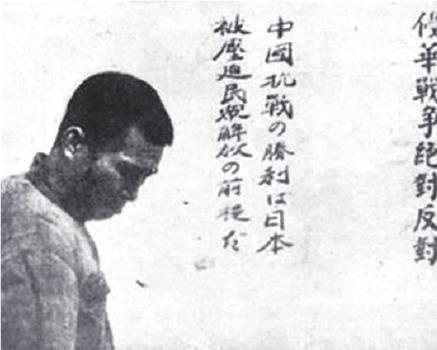 侵華戰争絶對反對
中國抗戰の勝利は日本
被壓迫民衆解放の前提だ